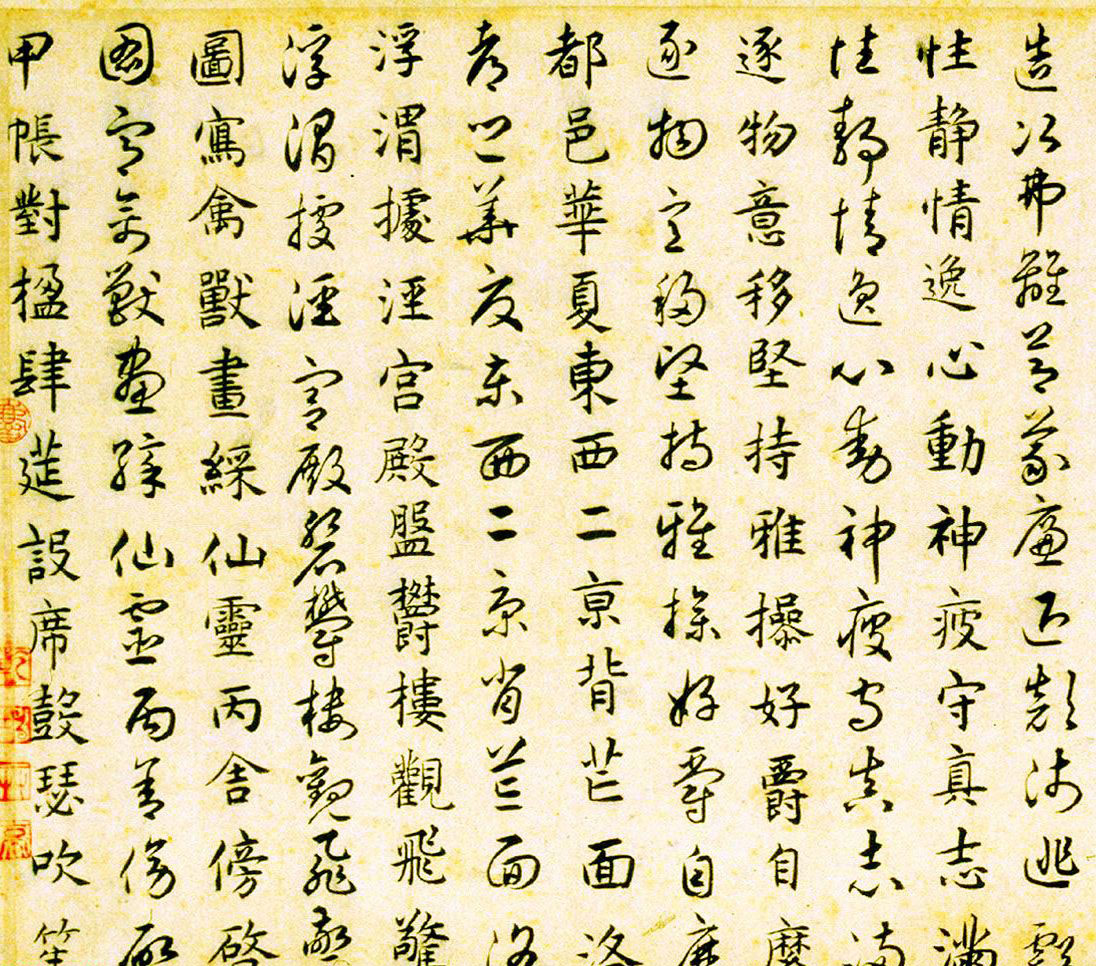 造次弗離節義廉退顛沛匪虧
性静情逸心動神疲守真志滿
性静情逸心動神疲守真志滿
逐物意移堅持雅操好爵自縻
逐物意移堅持雅操好爵自縻
都邑華夏東西二京背芒面洛
都邑華夏東西二京背芒面洛
浮渭據涇宫殿盤欝樓觀飛驚
浮渭據涇宫殿盤欝樓觀飛驚
圖寫禽獸畫綵仙靈丙舍傍啓
圖寫禽獸畫綵仙靈丙舍傍啓
甲帳對楹肆莚設席鼓瑟吹笙